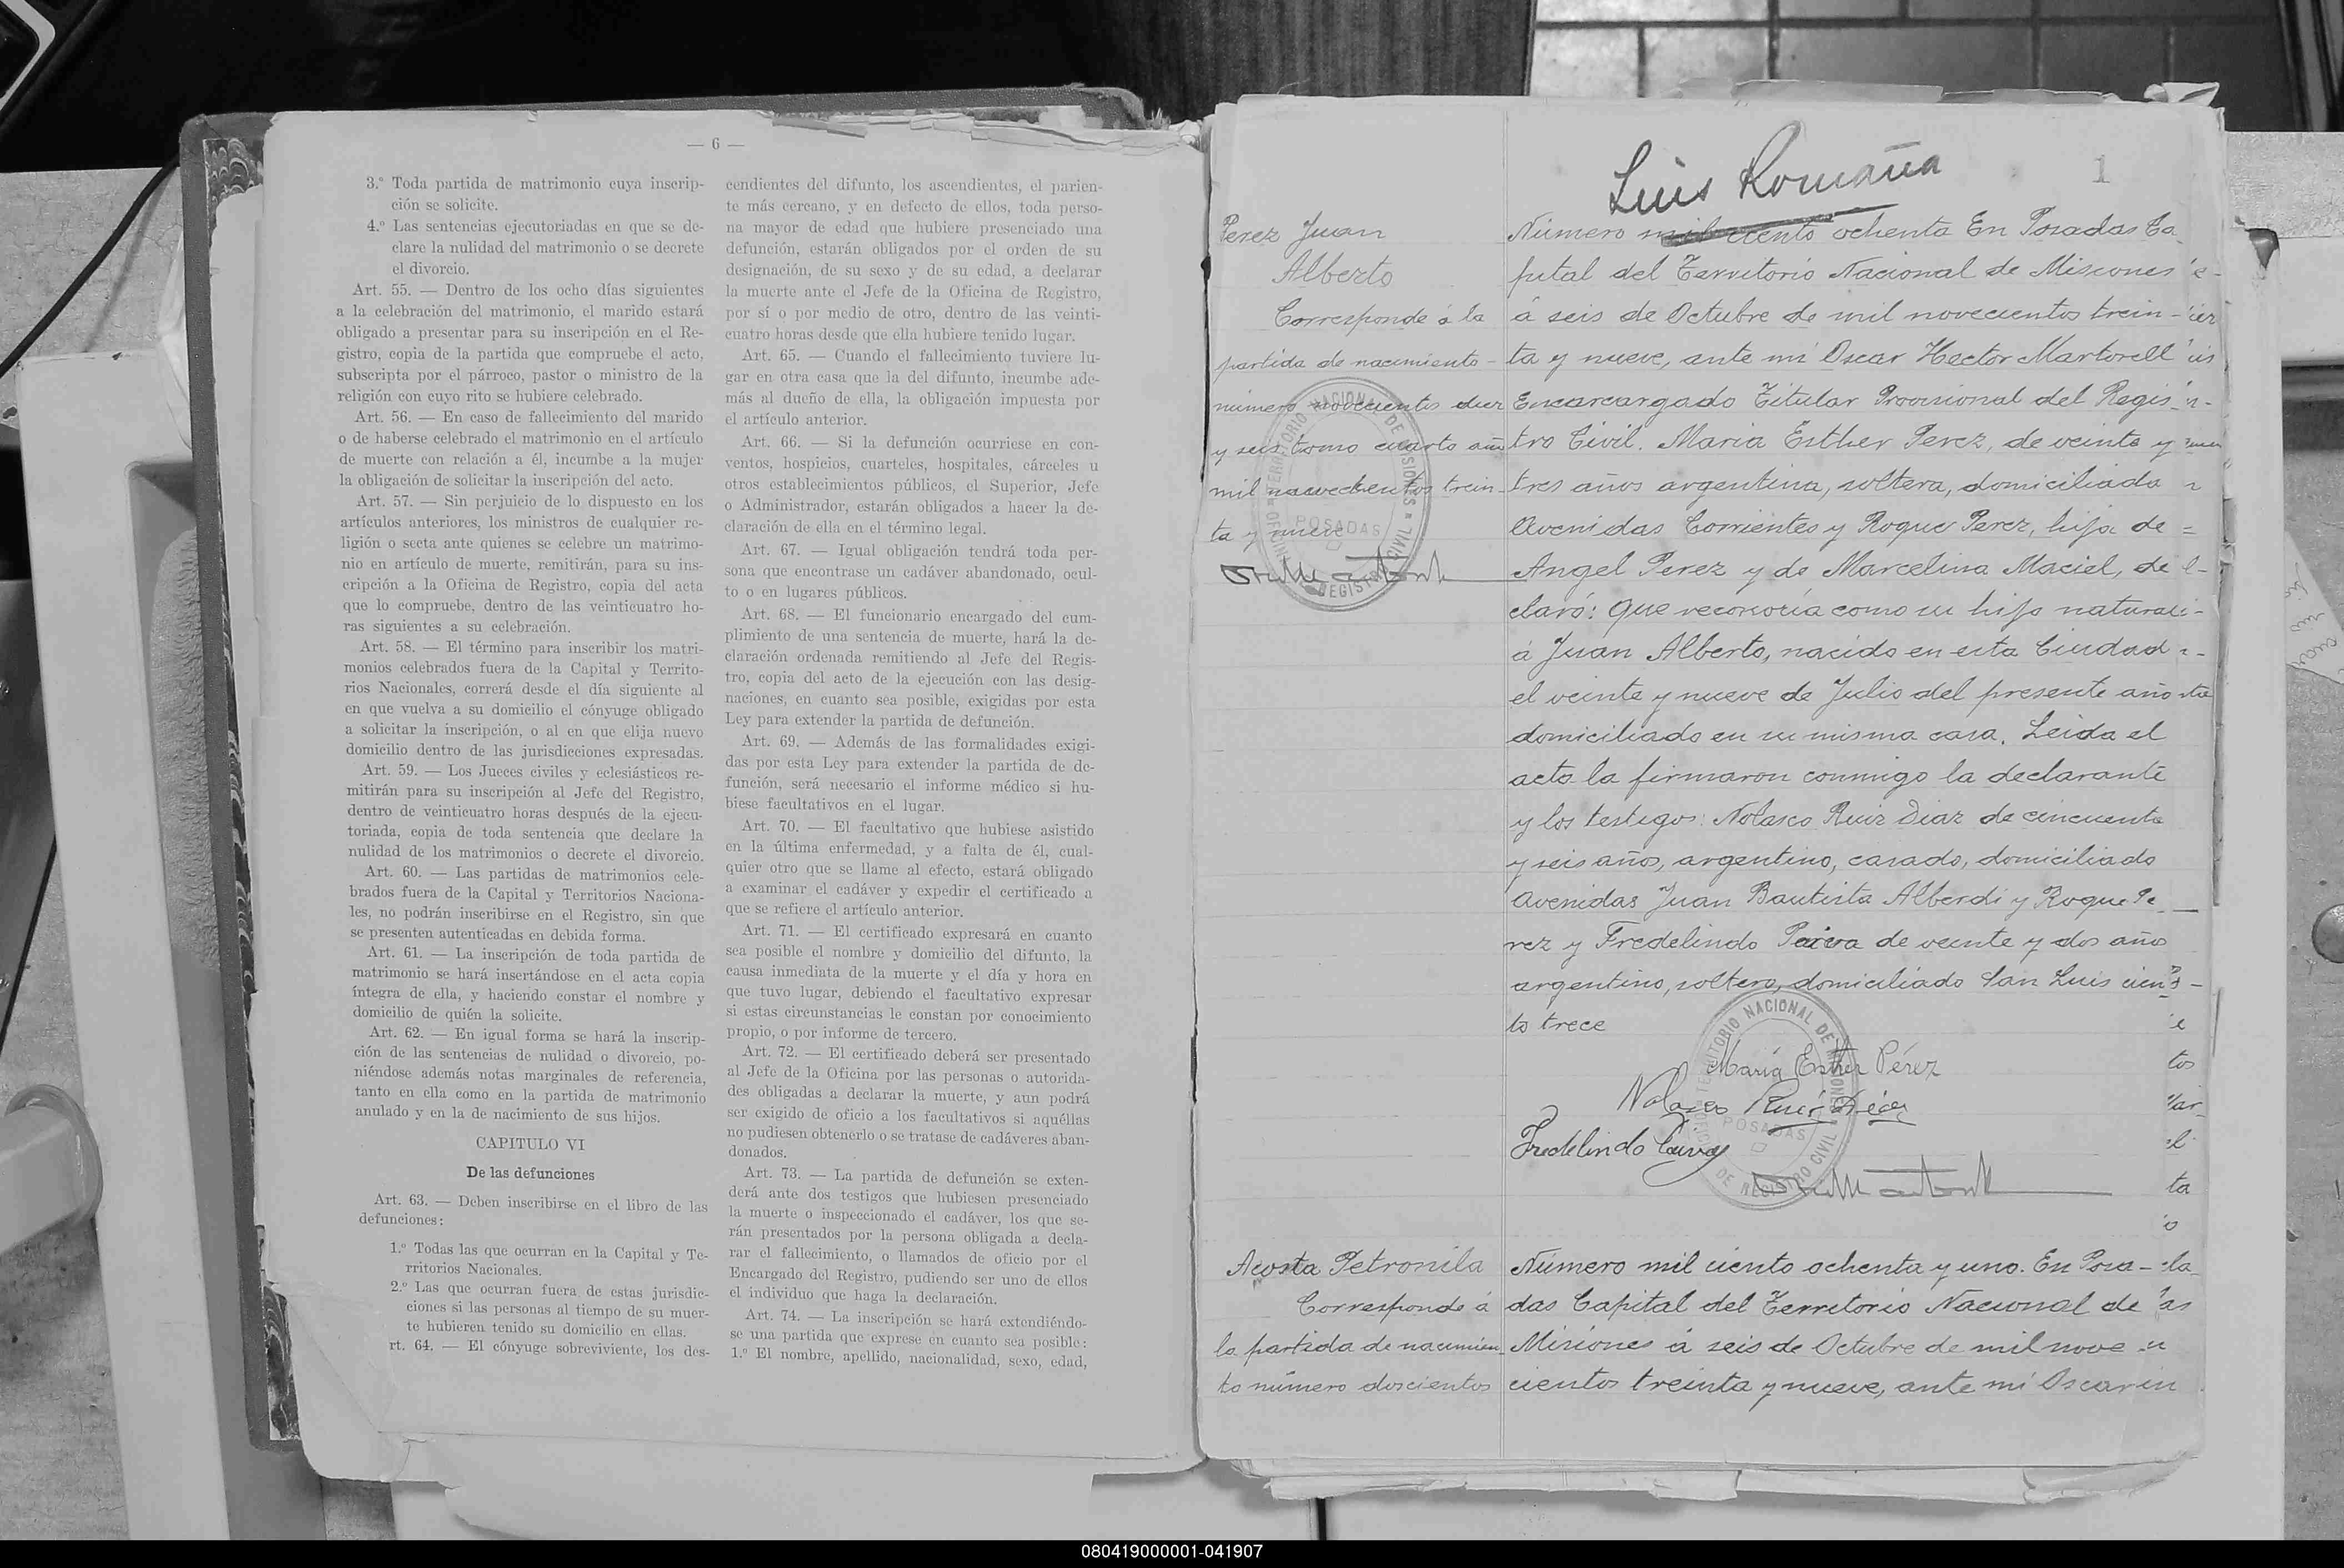 — 6 —
3.º Toda partida de matrimonio cuya inscrip-
ción se solicite.
4.º Las sentencias ejecutoriadas en que se de-
clare la nulidad del matrimonio o se decrete
el divorcio.
Art. 55. — Dentro de los ocho días siguientes
a la celebración del matrimonio, el marido estará
obligado a presentar para su inscripción en el Re-
gistro, copia de la partida que compruebe el acto,
subscripta por el párroco, pastor o ministro de la
religión con cuyo rito se hubiere celebrado.
Art. 56. — En caso de fallecimiento del marido
o de haberse celebrado el matrimonio en el artículo
de muerte con relación a él, incumbe a la mujer
la obligación de solicitar la inscripción del acto.
Art. 57. — Sin perjuicio de lo dispuesto en los
artículos anteriores, los ministros de cualquier re-
ligión o secta ante quienes se celebre un matrimo-
nio en artículo de muerte, remitirán, para su ins-
cripción a la Oficina de Registro, copia del acta
que lo compruebe, dentro de las veinticuatro ho-
ras siguientes a su celebración.
Art. 58. — El término para inscribir los matri-
monios celebrados fuera de la Capital y Territo-
rios Nacionales, correrá desde el día siguiente al
en que vuelva a su domicilio el cónyuge obligado
a solicitar la inscripción, o al en que elija nuevo
domicilio dentro de las jurisdicciones expresadas.
Art. 59. — Los Jueces civiles y eclesiásticos re-
mitirán para su inscripción al Jefe del Registro,
dentro de veinticuatro horas después de la ejecu-
toriada, copia de toda sentencia que declare la
nulidad de los matrimonios o decrete el divorcio.
Art. 60. — Las partidas de matrimonios cele-
brados fuera de la Capital y Territorios Naciona-
les, no podrán inscribirse en el Registro, sin que
se presenten autenticadas en debida forma.
Art. 61. — La inscripción de toda partida de
matrimonio se hará insertándose en el acta copia
íntegra de ella, y haciendo constar el nombre y
domicilio de quién la solicite.
Art. 62. — En igual forma se hará la inscrip-
ción de las sentencias de nulidad o divorcio, po-
niéndose además notas marginales de referencia,
tanto en ella como en la partida de matrimonio
anulado y en la de nacimiento de sus hijos.
CAPITULO VI
De las defunciones
Art. 63. — Deben inscribirse en el libro de las
defunciones:
1.º Todas las que ocurran en la Capital y Te-
rritorios Nacionales.
2.º Las que ocurran fuera de estas jurisdic-
ciones si las personas al tiempo de su muer-
te hubieren tenido su domicilio en ellas.
rt. 64. — El cónyuge sobreviviente, los des-
cendientes del difunto, los ascendientes, el parien-
te más cercano, y en defecto de ellos, toda perso-
na mayor de edad que hubiere presenciado una
defunción, estarán obligados por el orden de su
designación, de su sexo y de su edad, a declarar
la muerte ante el Jefe de la Oficina de Registro,
por sí o por medio de otro, dentro de las veinti-
cuatro horas desde que ella hubiere tenido lugar.
Art. 65. — Cuando el fallecimiento tuviere lu-
gar en otra casa que la del difunto, incumbe ade-
más al dueño de ella, la obligación impuesta por
el artículo anterior.
Art. 66. — Si la defunción ocurriese en con-
ventos, hospicios, cuarteles, hospitales, cárceles u
otros establecimientos públicos, el Superior, Jefe
o Administrador, estarán obligados a hacer la de-
claración de ella en el término legal.
Art. 67. — Igual obligación tendrá toda per-
sona que encontrase un cadáver abandonado, ocul-
to o en lugares públicos.
Art. 68. — El funcionario encargado del cum-
plimiento de una sentencia de muerte, hará la de-
claración ordenada remitiendo al Jefe del Regis-
tro, copia del acto de la ejecución con las desig-
naciones, en cuanto sea posible, exigidas por esta
Ley para extender la partida de defunción.
Art. 69. — Además de las formalidades exigi-
das por esta Ley para extender la partida de de-
función, será necesario el informe médico si hu-
biese facultativos en el lugar.
Art. 70. — El facultativo que hubiese asistido
en la última enfermedad, y a falta de él, cual-
quier otro que se llame al efecto, estará obligado
a examinar el cadáver y expedir el certificado a
que se refiere el artículo anterior.
Art. 71. — El certificado expresará en cuanto
sea posible el nombre y domicilio del difunto, la
causa inmediata de la muerte y el día y hora en
que tuvo lugar, debiendo el facultativo expresar
si estas circunstancias le constan por conocimiento
propio, o por informe de tercero.
Art. 72. — El certificado deberá ser presentado
al Jefe de la Oficina por las personas o autorida-
des obligadas a declarar la muerte, y aun podrá
ser exigido de oficio a los facultativos si aquéllas
no pudiesen obtenerlo o se tratase de cadáveres aban-
donados.
Art. 73. — La partida de defunción se exten-
derá ante dos testigos que hubiesen presenciado
la muerte o inspeccionado el cadáver, los que se-
rán presentados por la persona obligada a decla-
rar el fallecimiento, o llamados de oficio por el
Encargado del Registro, pudiendo ser uno de ellos
el individuo que haga la declaración.
Art. 74. — La inscripción se hará extendiéndo-
se una partida que exprese en cuanto sea posible:
1.º El nombre, apellido, nacionalidad, sexo, edad,
Luis Romaña
1
Perez Juan
Alberto
Corresponde á la
partida de nacimiento
número novecientos diez
y seis tomo cuarto año
mil novecientos trein-
ta y nueve
Número mil ciento ochenta En Posadas Ca
pital del Territorio Nacional de Misiones
á seis de Octubre de mil novecientos trein-
ta y nueve, ante mi Oscar Hector Martorell
Encarcargado Titular Provisional del Regis-
tro Civil. Maria Esther Perez, de veinte y
tres años argentina, soltera, domiciliada
Avenidas Corrientes y Roque Perez, hija de
Angel Perez y de Marcelina Maciel, de
claró: Que reconocía como su hijo natural
á Juan Alberto, nacido en esta Ciudad
el veinte y nueve de Julio del presente año
domiciliado en su misma casa. Leida el
acta la firmaron conmigo la declarante
y los testigos: Nolasco Ruiz Diaz de cincuenta
y seis años, argentino, casado, domiciliado
Avenidas Juan Bautista Alberdi y Roque Pe
rez y Fredelindo Paiva de veinte y dos años
argentino, soltero, domiciliado San Luis cien
to trece
María Esther Pérez
Nolasco Ruiz Diaz
Fredelindo Paiva
OFICINA DE REGISTRO CIVIL
TERRITORIO NACIONAL DE MISIONES
POSADAS
Acosta Petronila
Corresponde á
la partida de nacimien
to número doscientos
Número mil ciento ochenta y uno. En Posa-
das Capital del Territorio Nacional de
Misiones á seis de Octubre de mil nove
cientos treinta y nueve, ante mi Oscar
080419000001-041907